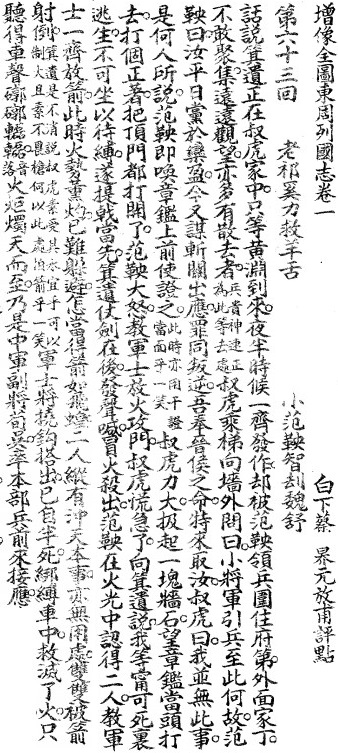 增像全圖東周列國志卷一
白下蔡 奡元放甫評點
第六十三回 老祁奚力救羊舌 小范鞅智刦魏舒
話說箕遺正在叔虎家中只等黃淵到來夜半時候一齊發作却被范鞅領兵圍住府第外面家丁
不敢聚集遠遠觀望亦多有散去者兵貴神速正為此等去處叔虎乘梯向墻外問曰小將軍引兵至此何故范
鞅曰汝平日黨於欒盈今又謀斬關出應罪同叛逆吾奉晉侯之命特來取汝叔虎曰我並無此事
是何人所說范鞅即喚章鑑上前使證之此時亦用干證當面乎一笑叔虎力大扳起一塊牆石望章鑑當頭打
去打個正著把頂門都打開了范鞅大怒教軍士放火攻門叔虎慌急了向箕遺說我等甯可死裏
逃生不可坐以待縛遂提戟當先箕遺仗劍在後發聲喊冒火殺出范鞅在火光中認得二人教軍
士一齊放箭此時火勢薰灼已難躲避怎當得箭如飛蝗二人縱有沖天本事亦無用處雙雙被箭
射倒箕遺是不消說叔虎素受其水宜乎可以制火且素不畏槍何以此處怕箭乎一笑軍士將撓鈎搭出已自半死綁縛車中救滅了火只
聽得車聲轔轔火炬燭天而至乃是中軍副將荀吳率本部兵前來接應